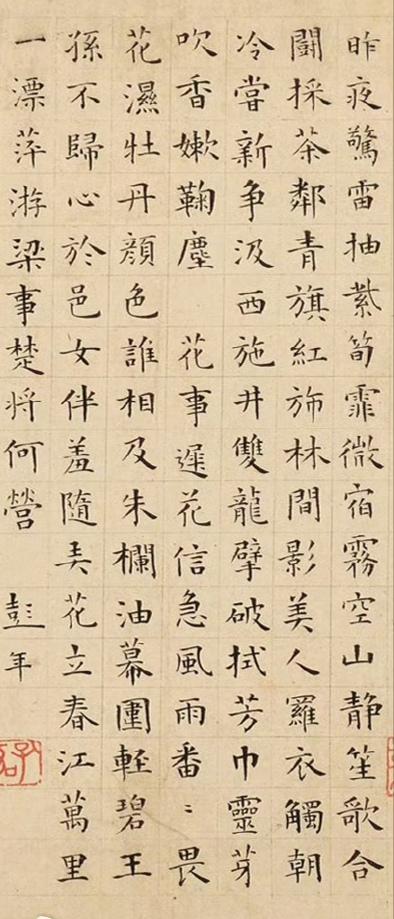 昨夜驚雷抽紫筍霏微宿霧空山静笙歌合
闘採茶鄰青旗紅斾林間影美人羅衣觸朝
冷嘗新争汲西施井雙龍擘破拭芳巾靈芽
吹香嫰鞠塵 花事遲花信急風雨番〻畏
花濕牡丹顔色誰相及朱欄油幕圍輕碧王
孫不歸心於邑女伴羞隨弄花立春江萬里
一漂萍游梁事楚将何營 彭年